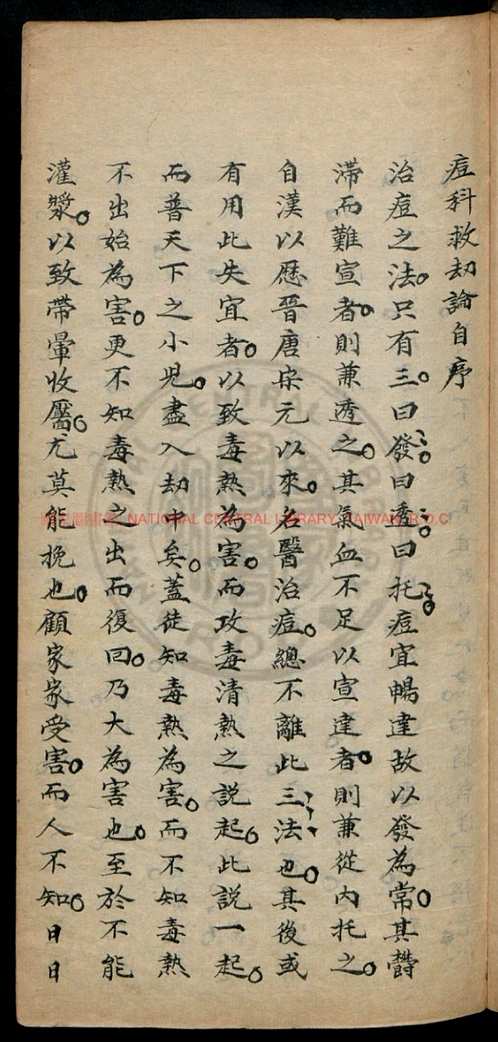 痘科救劫論自序
治痘之法。只有三。曰發。曰透。曰托。痘宜暢達故以發為常。其欝
滯而難宣者。則兼透之。其氣血不足以宣達者。則兼從內托之。
自漢以歷晉唐宋元以來。名醫治痘。總不離此三法也。其後或
有用此失宜者。以致毒熱為害。而攻毒清熱之説起。此説一起。
而普天下之小児。盡入劫中矣。蓋徒知毒熱為害。而不知毒熱
不出始為害。更不知毒熱之出而復回。乃大為害也。至於不能
灌漿。以致帶暈收靨。尤莫能挽也。顧家家受害。而人不知。日日
NATIONAL CENTRAL LIBRARY, TAIWAN, R.O.C